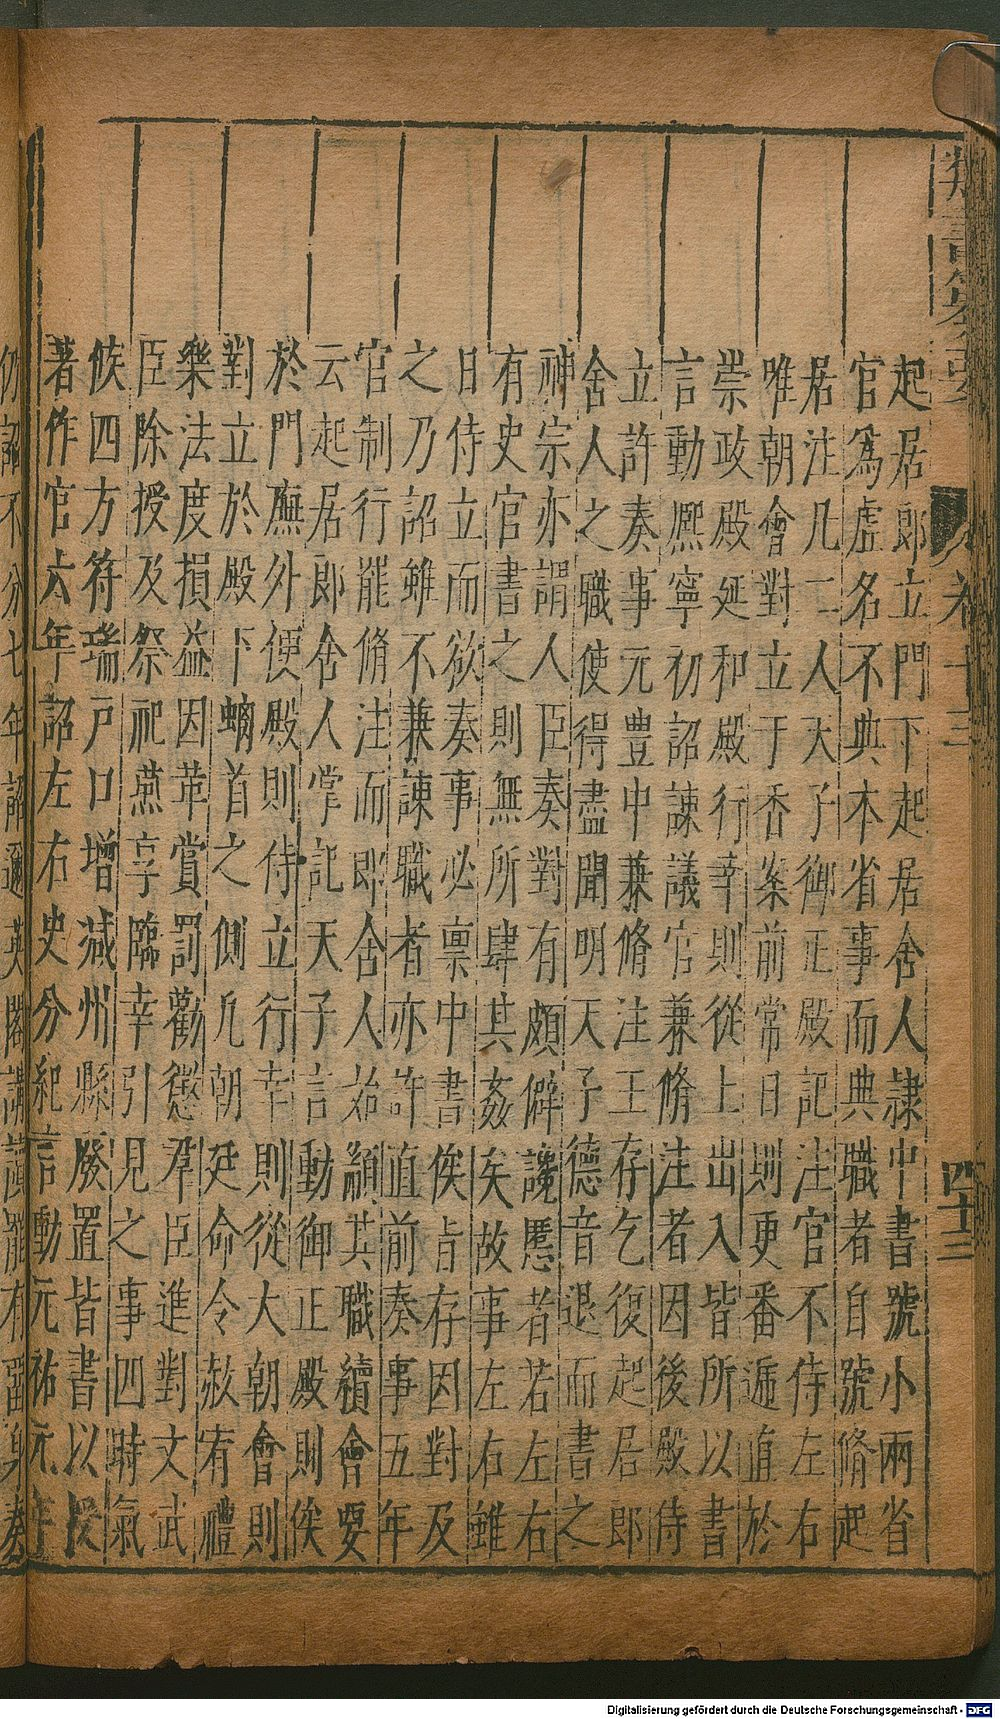 類書纂要
卷十三
四十三
起居郎立門下起居舍人隸中書號小兩省
官爲虛名不典本省事而典職者自號脩起
居注凡二人天子御正殿記注官不侍左右
唯朝會對立于香案前常日則更番遞直於
崇政殿延和殿行幸則從上出入皆所以書
言動熈寧初詔諫議官兼脩注者因後殿侍
立許奏事元豊中兼脩注王存乞復起居郎
舍人之職使得盡聞明天子德音退而書之
神宗亦謂人臣奏對有頗僻讒慝者若左右
有史官書之則無所肆其姦矣故事左右雖
日侍立而欲奏事必禀中書俟旨存因對及
之乃詔雖不兼諫職者亦許直前奏事五年
官制行罷脩注而即舍人始顓其職續會要
云起居郎舍人掌記天子言動御正殿則俟
於門廡外便殿則侍立行幸則從大朝會則
對立於殿下螭首之側凡朝廷命令赦宥禮
樂法度損益因革賞罰勸懲羣臣進對文武
臣除授及祭祀燕享臨幸引見之事四時氣
候四方符瑞戸口增减州縣廢置皆書以授
著作官六年詔左右史分紀言動元祐元年
仍詔不分七年詔邇英閣講讀罷有留身奏
Digitalisierung gefördert durch die Deutsche Forschungsgemeinschaft - DFG